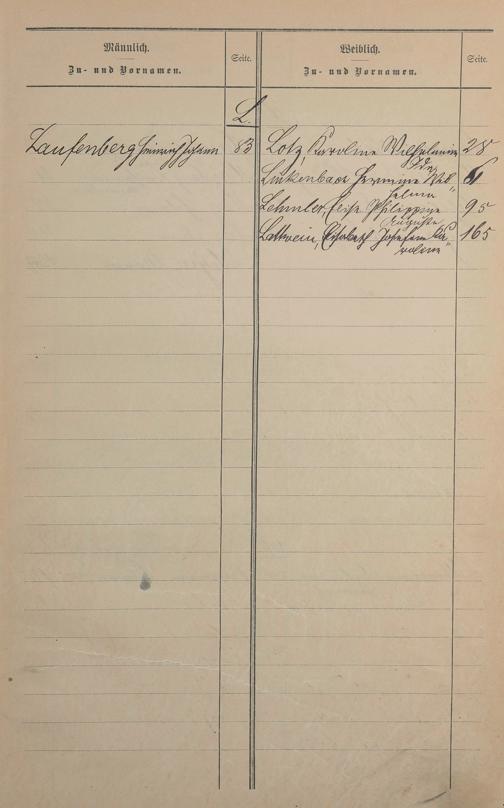 Männlich.
Zu- und Vornamen.
Seite.
Weiblich.
Zu- und Vornamen.
Seite.
L.
Laufenberg Heinrich Johann 83
Lotz, Karoline Wilhelmine 28
Ida
Linkenbach Hermine Wil-
helmine
Lehmler, Elise Philippine 95
Auguste
Elisabeth Josefine Ka- 165
roline